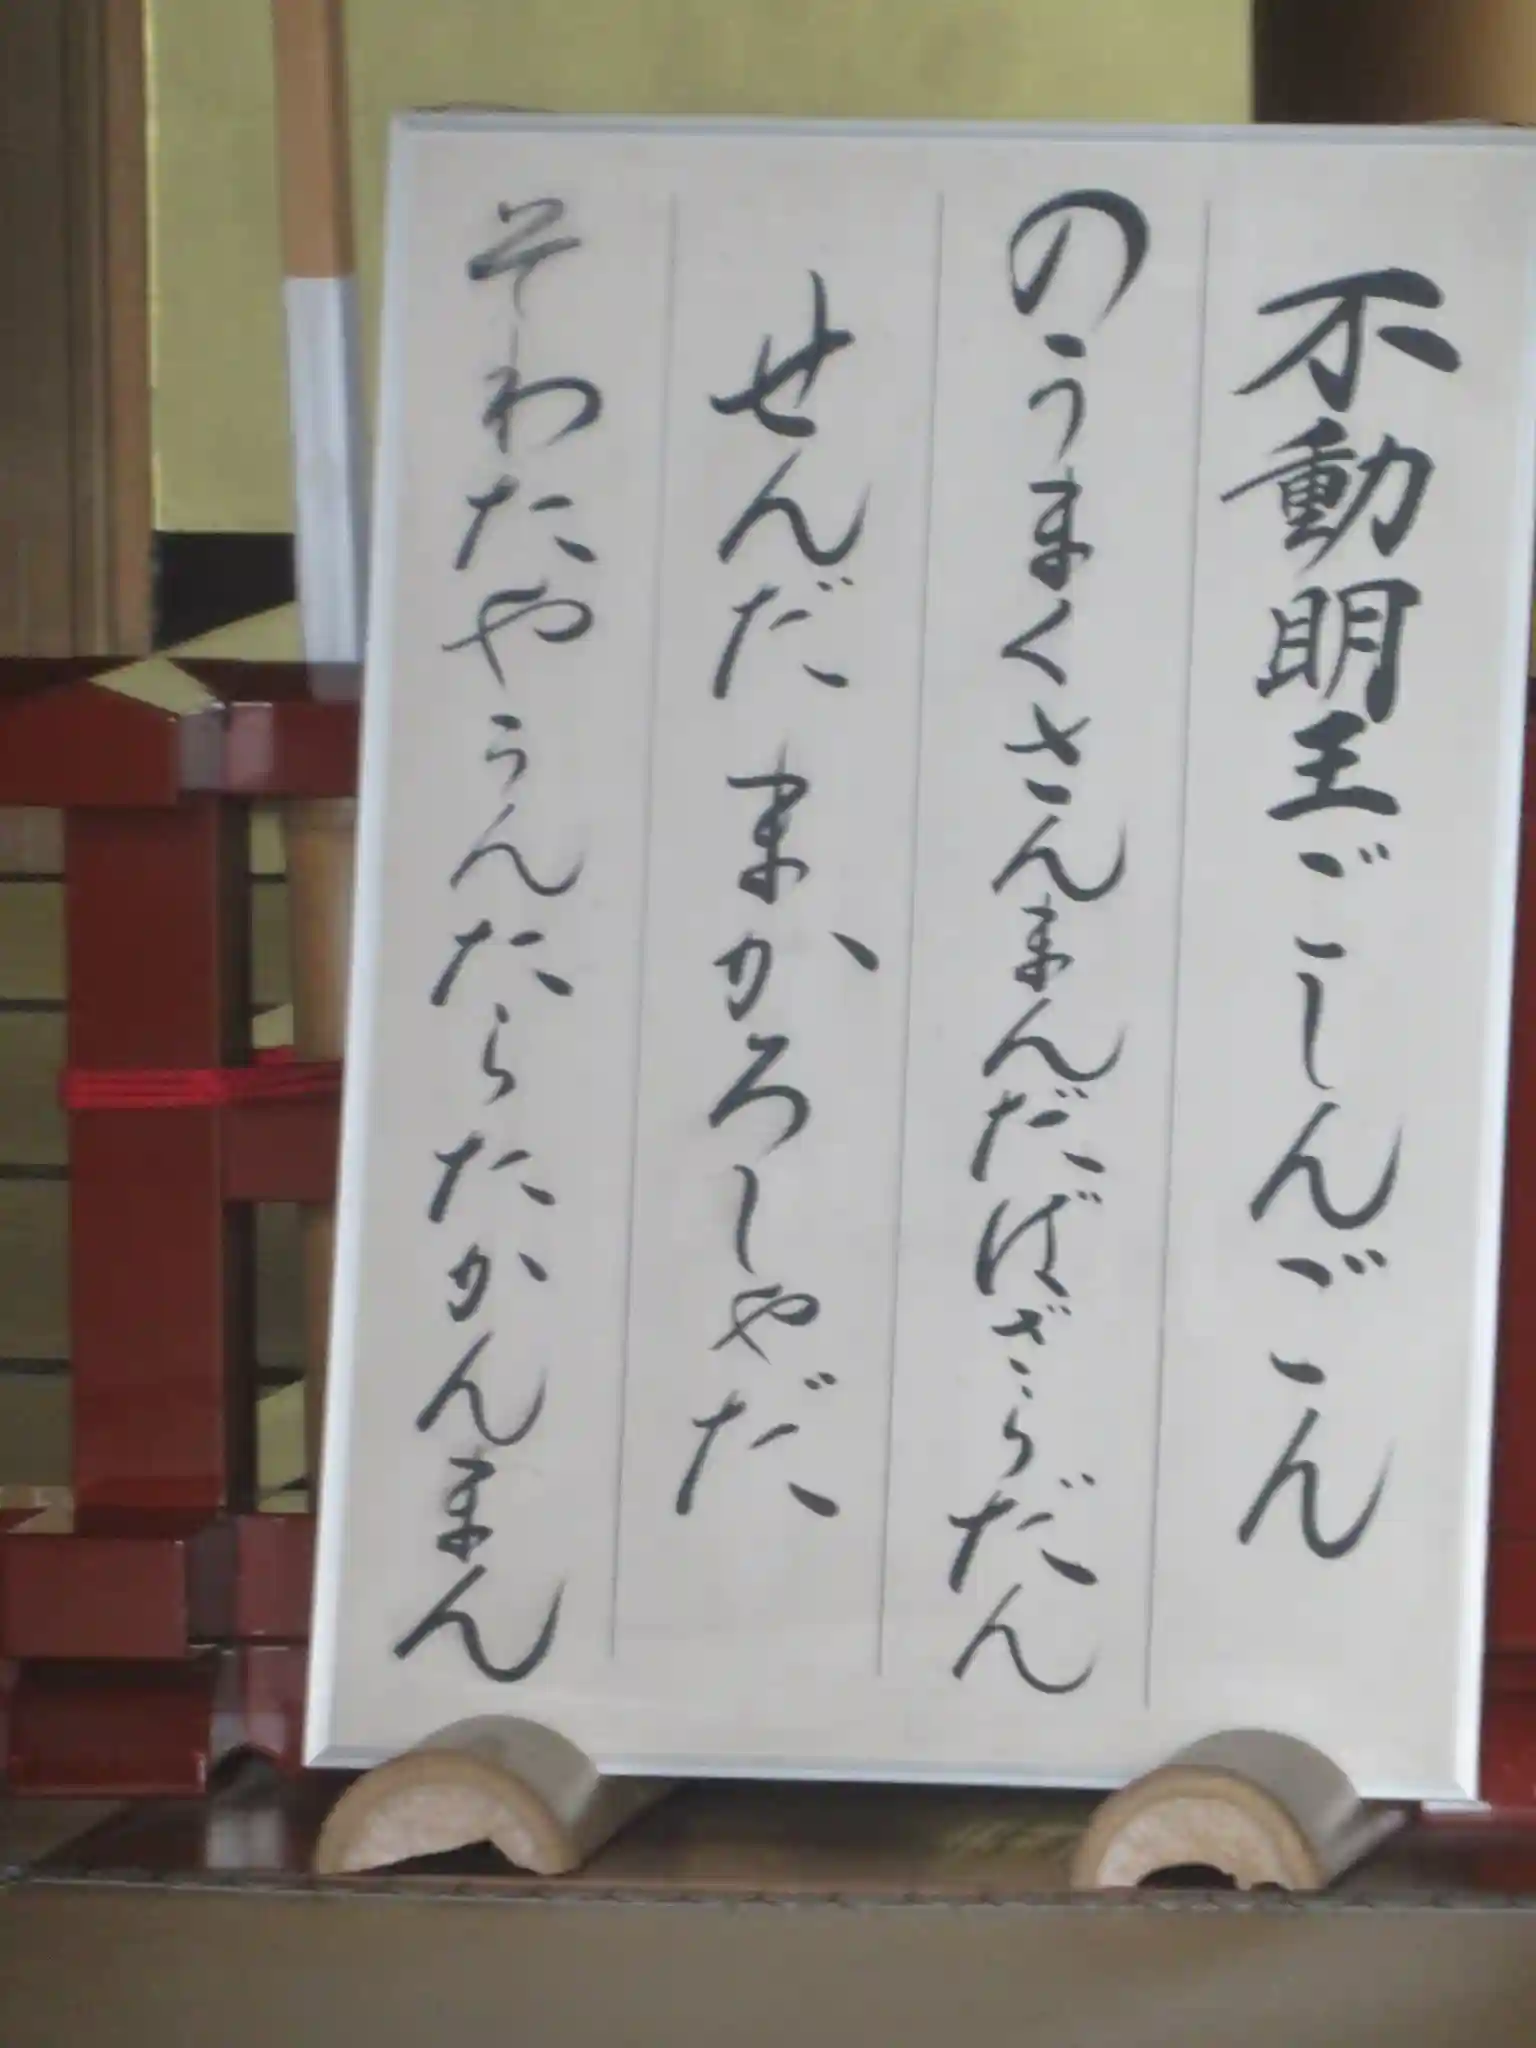 不動明王ごしんごん
のうまくさんまんだばざらだん
せんだまかろしやだ
そわたやうんたらたかんまん